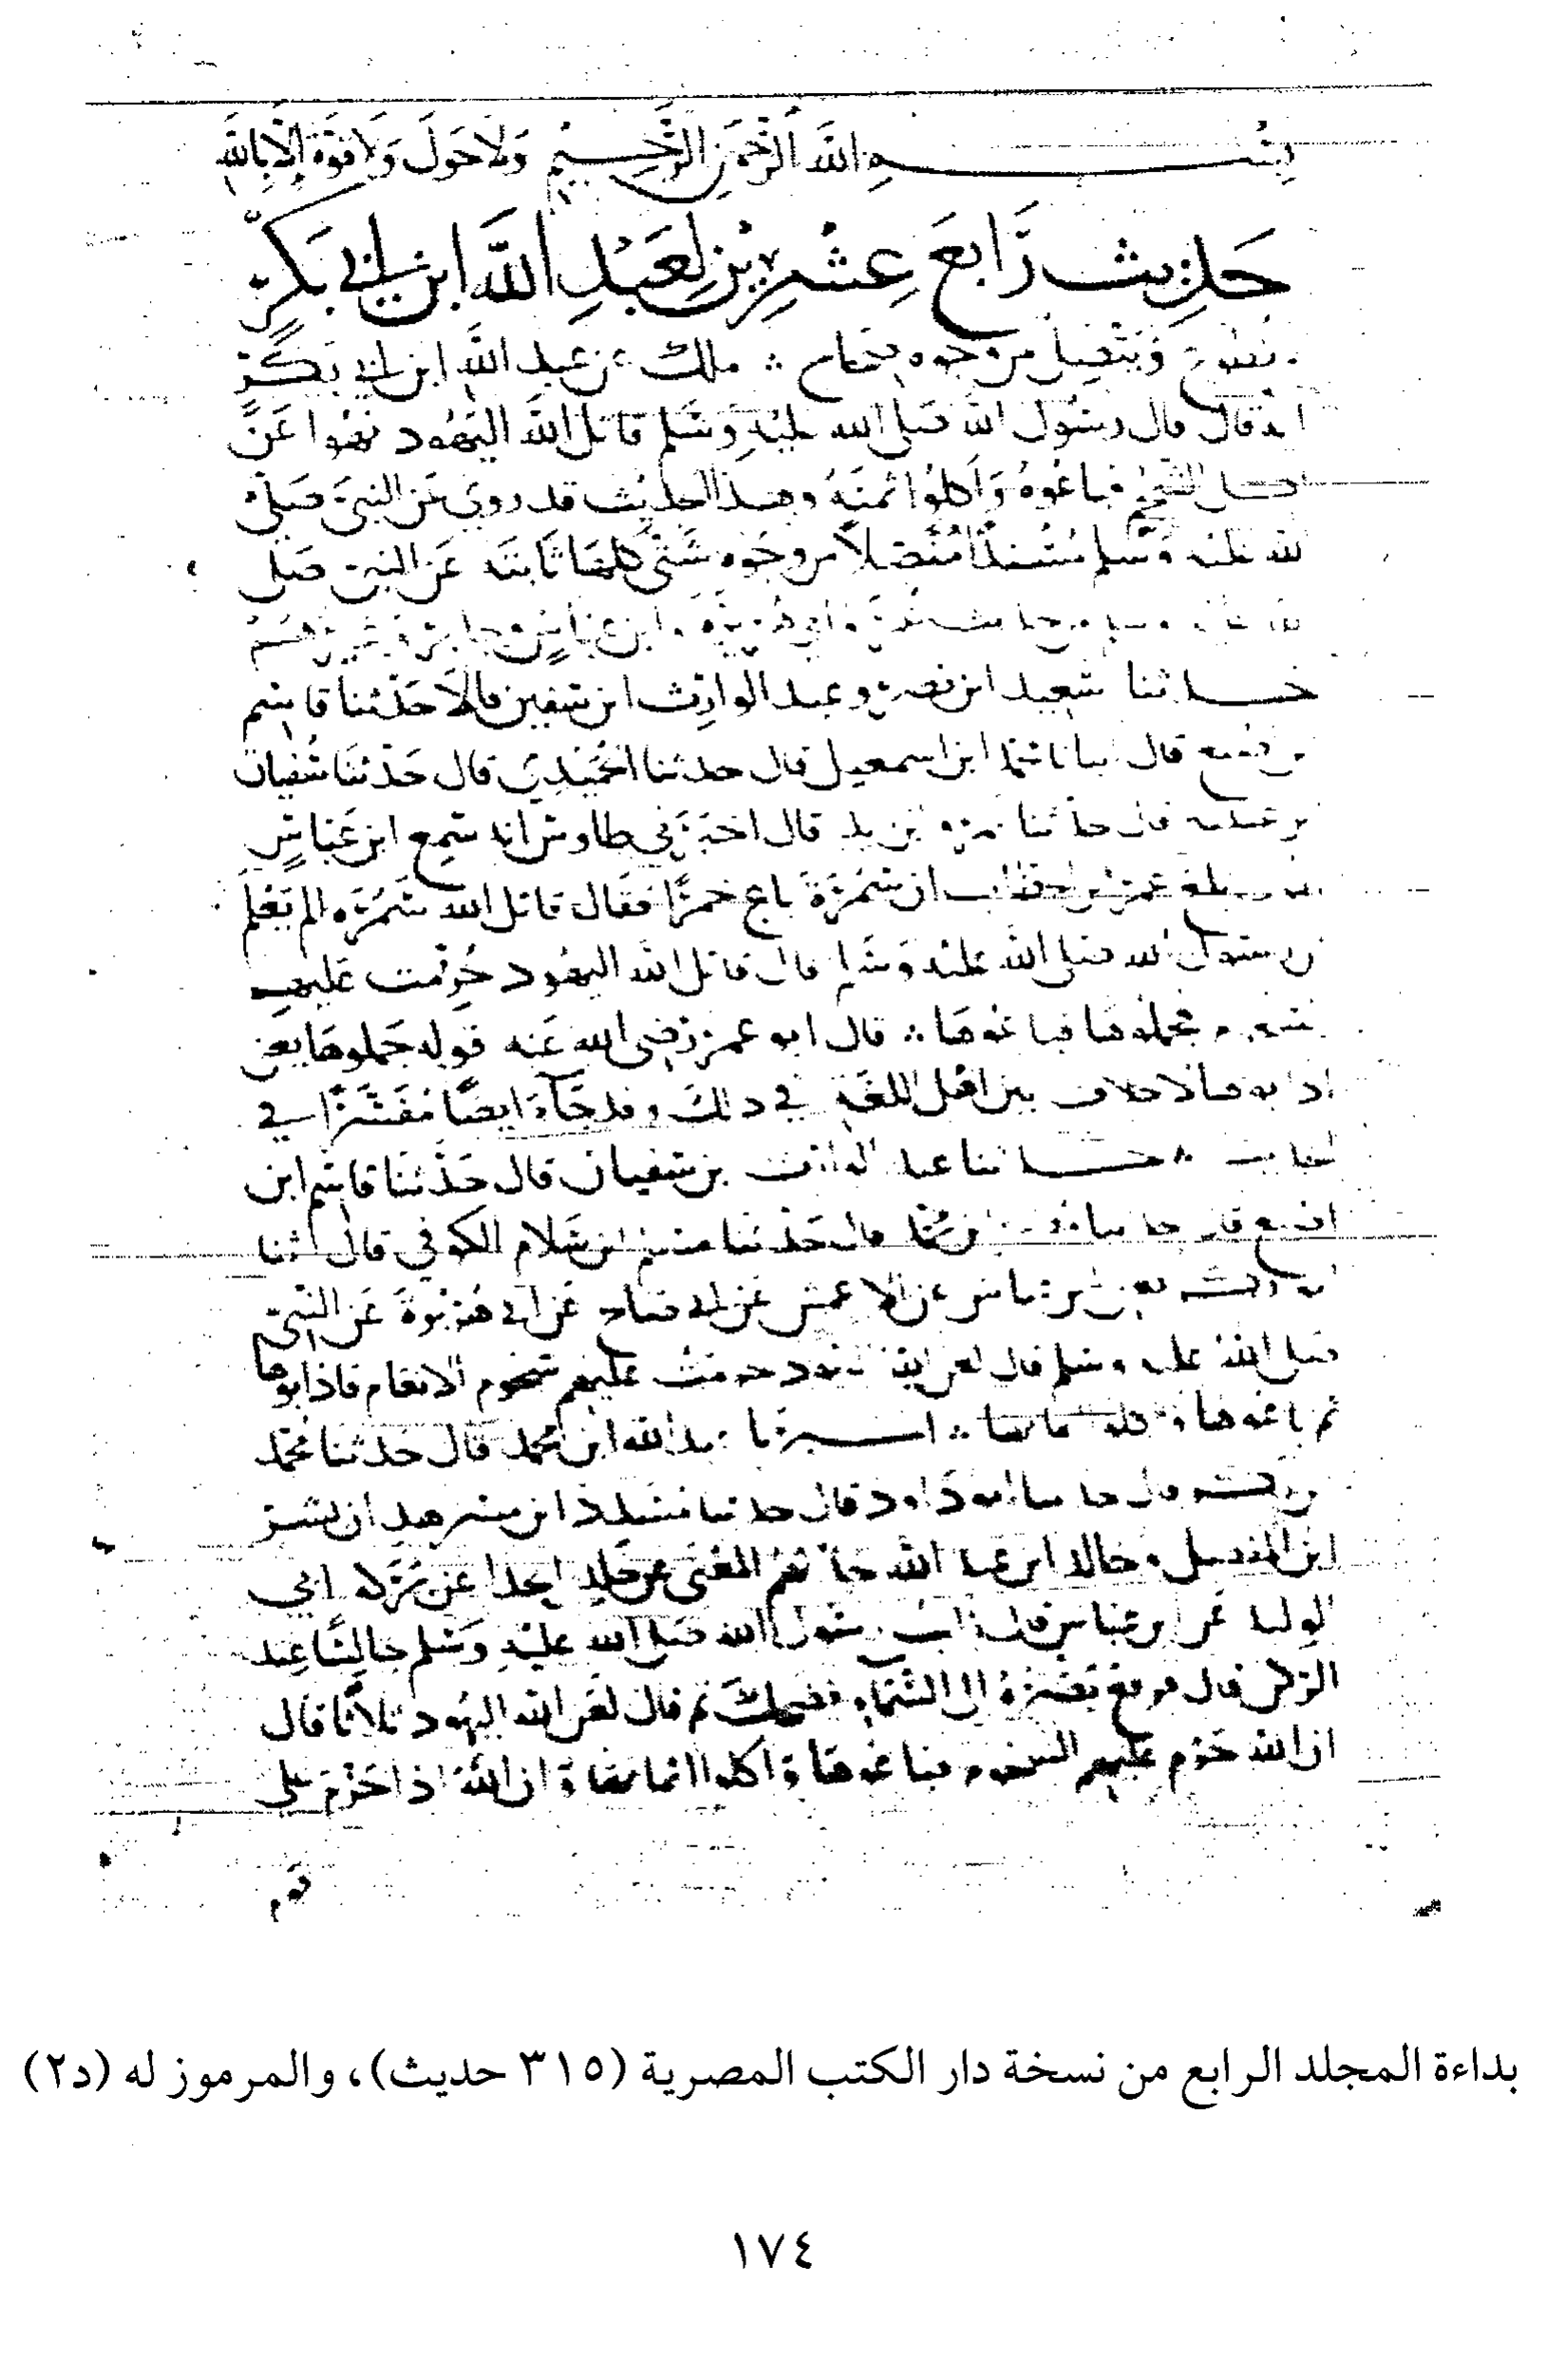 بسم الله الرحمن الرحيم ولا حول ولا قوة إلا بالله
حديث رابع عشرين لعبد الله ابن ابي بكر
ويتصل من وجوه صحاح ملك عن عبد الله ابن ابي بكر
انه قال قال رسول الله صلى الله عليه وسلم قاتل الله اليهود نهوا عن
اكل الشحم فباعوه وأكلوا ثمنه وهذا الحديث قد روي عن النبي صلى
الله عليه وسلم مسندا متصلا من وجوه شتى كلها ثابتة عن النبي صلى
الله عليه وسلم من حديث عمر وابي هريرة وابن عباس وجابر وغيرهم
حدثنا سعيد ابن نصر وعبد الوارث ابن سفين قالا حدثنا قاسم
بن اصبغ قال ابن اسمعيل قال حدثنا الحميدي قال حدثنا سفيان
قال حدثنا قال اخبرني طاوس انه سمع ابن عباس
بلغ عمر بن الخطاب ان سمرة باع خمرا فقال قاتل الله سمرة الم يعلم
ان رسول الله صلى الله عليه وسلم قال قاتل الله اليهود حرمت عليهم
الشحوم فجملوها فباعوها قال ابو عمر رضي الله عنه قوله جملوها يعني
اذابوها لا خلاف بين اهل اللغة في ذلك وقد جاء ايضا مفسرا في
الحديث حدثنا عبد الوارث بن سفيان قال حدثنا قاسم ابن
اصبغ قال حدثنا بن محمد قال حدثنا ابن سلام الكوفي قال ثنا
عن الاعمش عن ابي صالح عن ابي هريرة عن النبي
صلى الله عليه وسلم قال لعن الله اليهود حرمت عليهم شحوم الانعام فاذابوها
ثم باعوها واكلوا اثمانها اخبرنا عبد الله ابن محمد قال حدثنا محمد
بن بكر قال حدثنا ابو داود قال حدثنا مسدد ابن مسرهد ان بشر
ابن المفضل وخالد ابن عبد الله حدثاهم المعنى عن خلد الحذا عن بركة ابي
الوليد عن ابن عباس قال رايت رسول الله صلى الله عليه وسلم جالسا عند
الركن قال فرفع بصره الى السماء فضحك ثم قال لعن الله اليهود ثلاثا قال
ان الله حرم عليهم الشحوم فباعوها واكلوا اثمانها وان الله اذا حرم على
قوم
بداءة المجلد الرابع من نسخة دار الكتب المصرية (٣١٥ حديث)، والمرموز له (د٢)
١٧٤